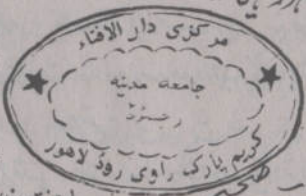 مرکزی دار الافتاء
جامعہ مدنیہ
رجسٹرڈ
کریم پارک راوی روڈ لاہور